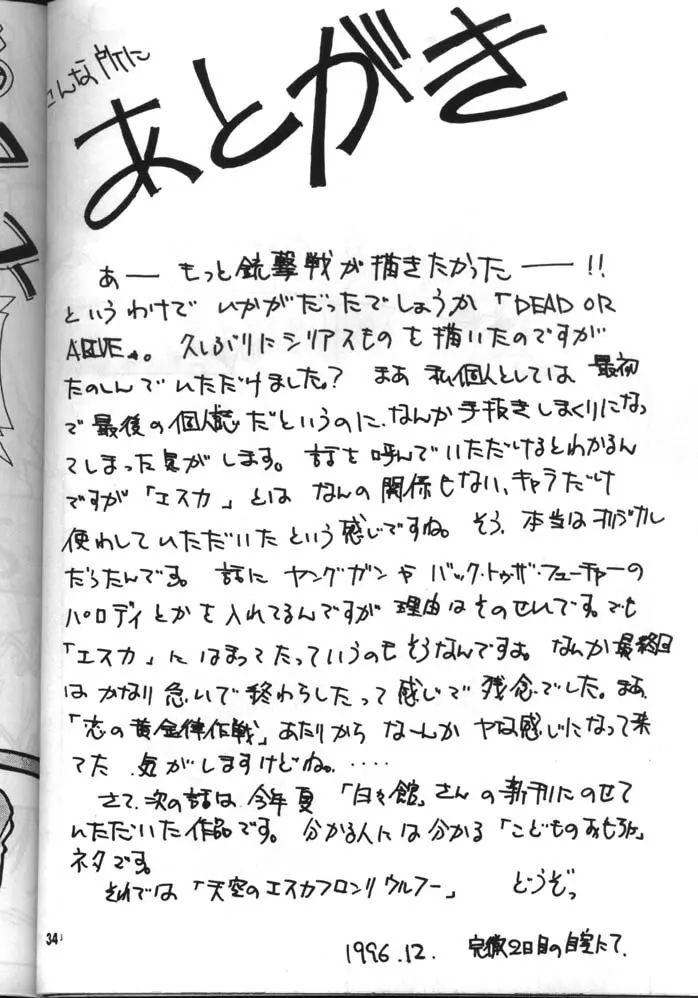 こんな所に
あとがき
あー もっと銃撃戦が描きたかったー!!
というわけで いかがだったでしょうか「DEAD OR
ALIVE」。 久しぶりにシリアスものを描いたのですが
たのしんでいただけました? まあ 私個人としては 最初
で最後の個人誌だというのに、なんか手抜きしまくりになっ
てしまった気がします。 話を呼んでいただけるとわかるん
ですが「エスカ」とは なんの関係もない、キャラだけ
使わしていただいたという感じですね。 そう、本当はオリジナル
だったんです。 話に ヤングガンや バック・トゥザ・フューチャーの
パロディとかを入れてるんですが 理由はそのせいです。でも
「エスカ」にはまってたっていうのもそうなんですよ。なんか最終回
は かなり急いで終わらしたって感じで残念でした。まあ、
「恋の黄金律作戦」あたりから なーんか ヤな感じになって来
てた 気がしますけどね。・・・・
さて、次の話は 今年夏 「白々館」さんの新刊にのせて
いただいた作品です。 分かる人には分かる「こどものおもちゃ」
ネタです。
それでは「天空のエスカフロンリウルフー」 どうぞっ
34
1996.12. 完徹2日目の自室にて.